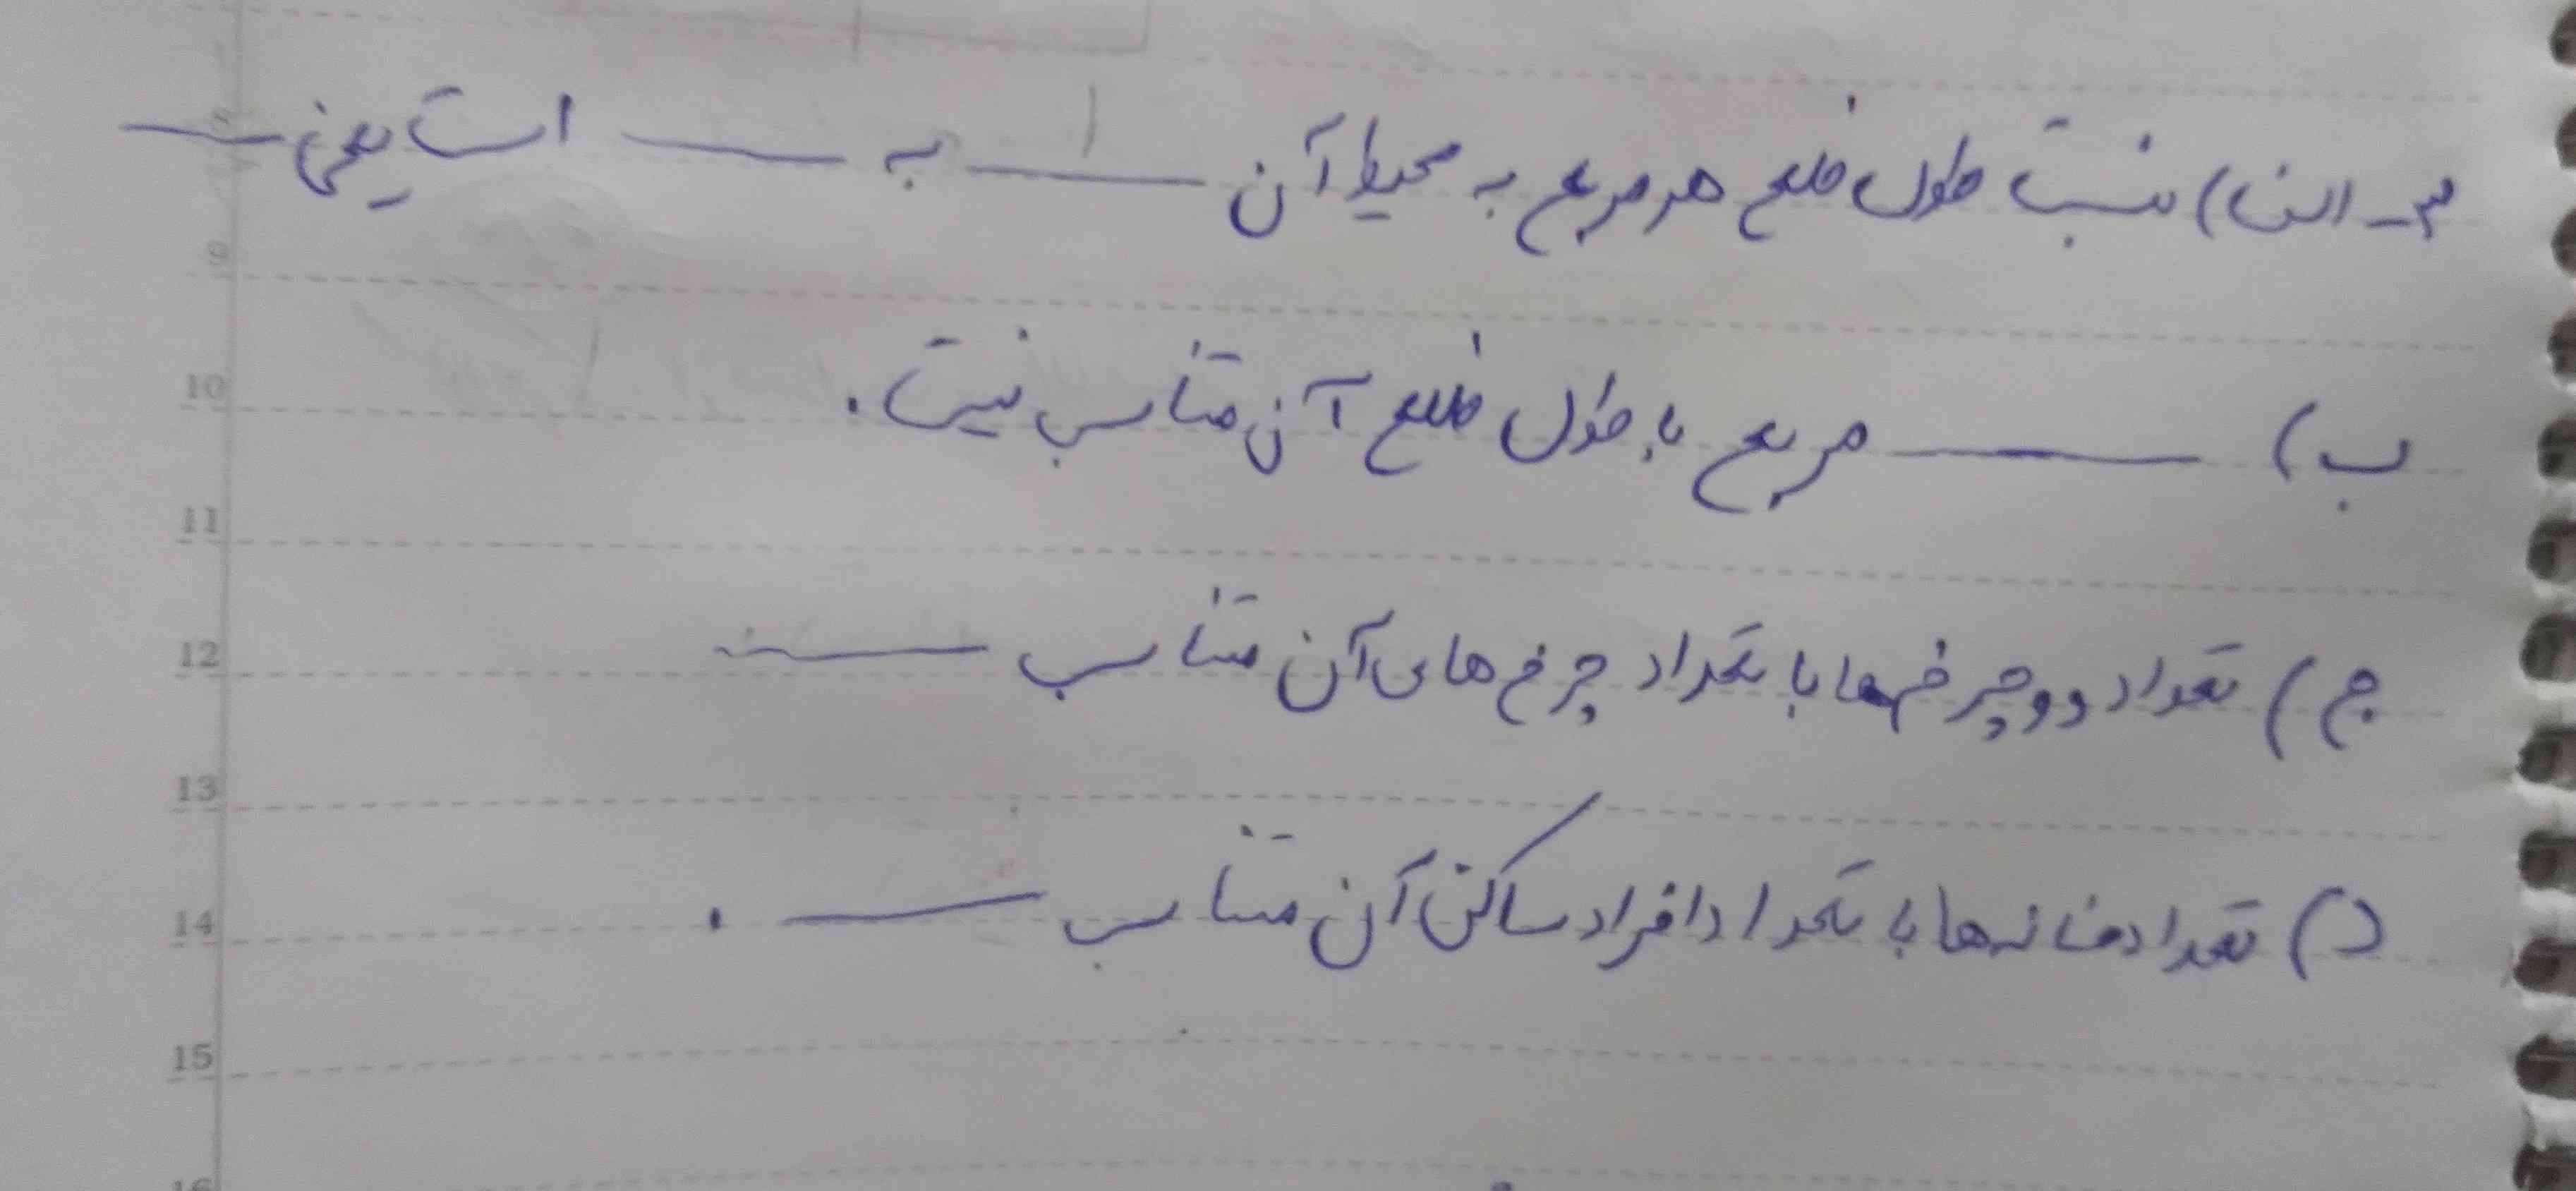 ۳ـ الف) نسبت طول ضلع هر مربع به محیط آن ــــــ به ــــــ است یعنی ــــــ
ب) ــــــ مربع با طول ضلع آن متناسب نیست.
ج) تعداد دوچرخه‌ها با تعداد چرخ‌های آن متناسب ــــــ
د) تعداد خانه‌ها با تعداد افراد ساکن آن متناسب ــــــ .
8
9
10
11
12
13
14
15
16